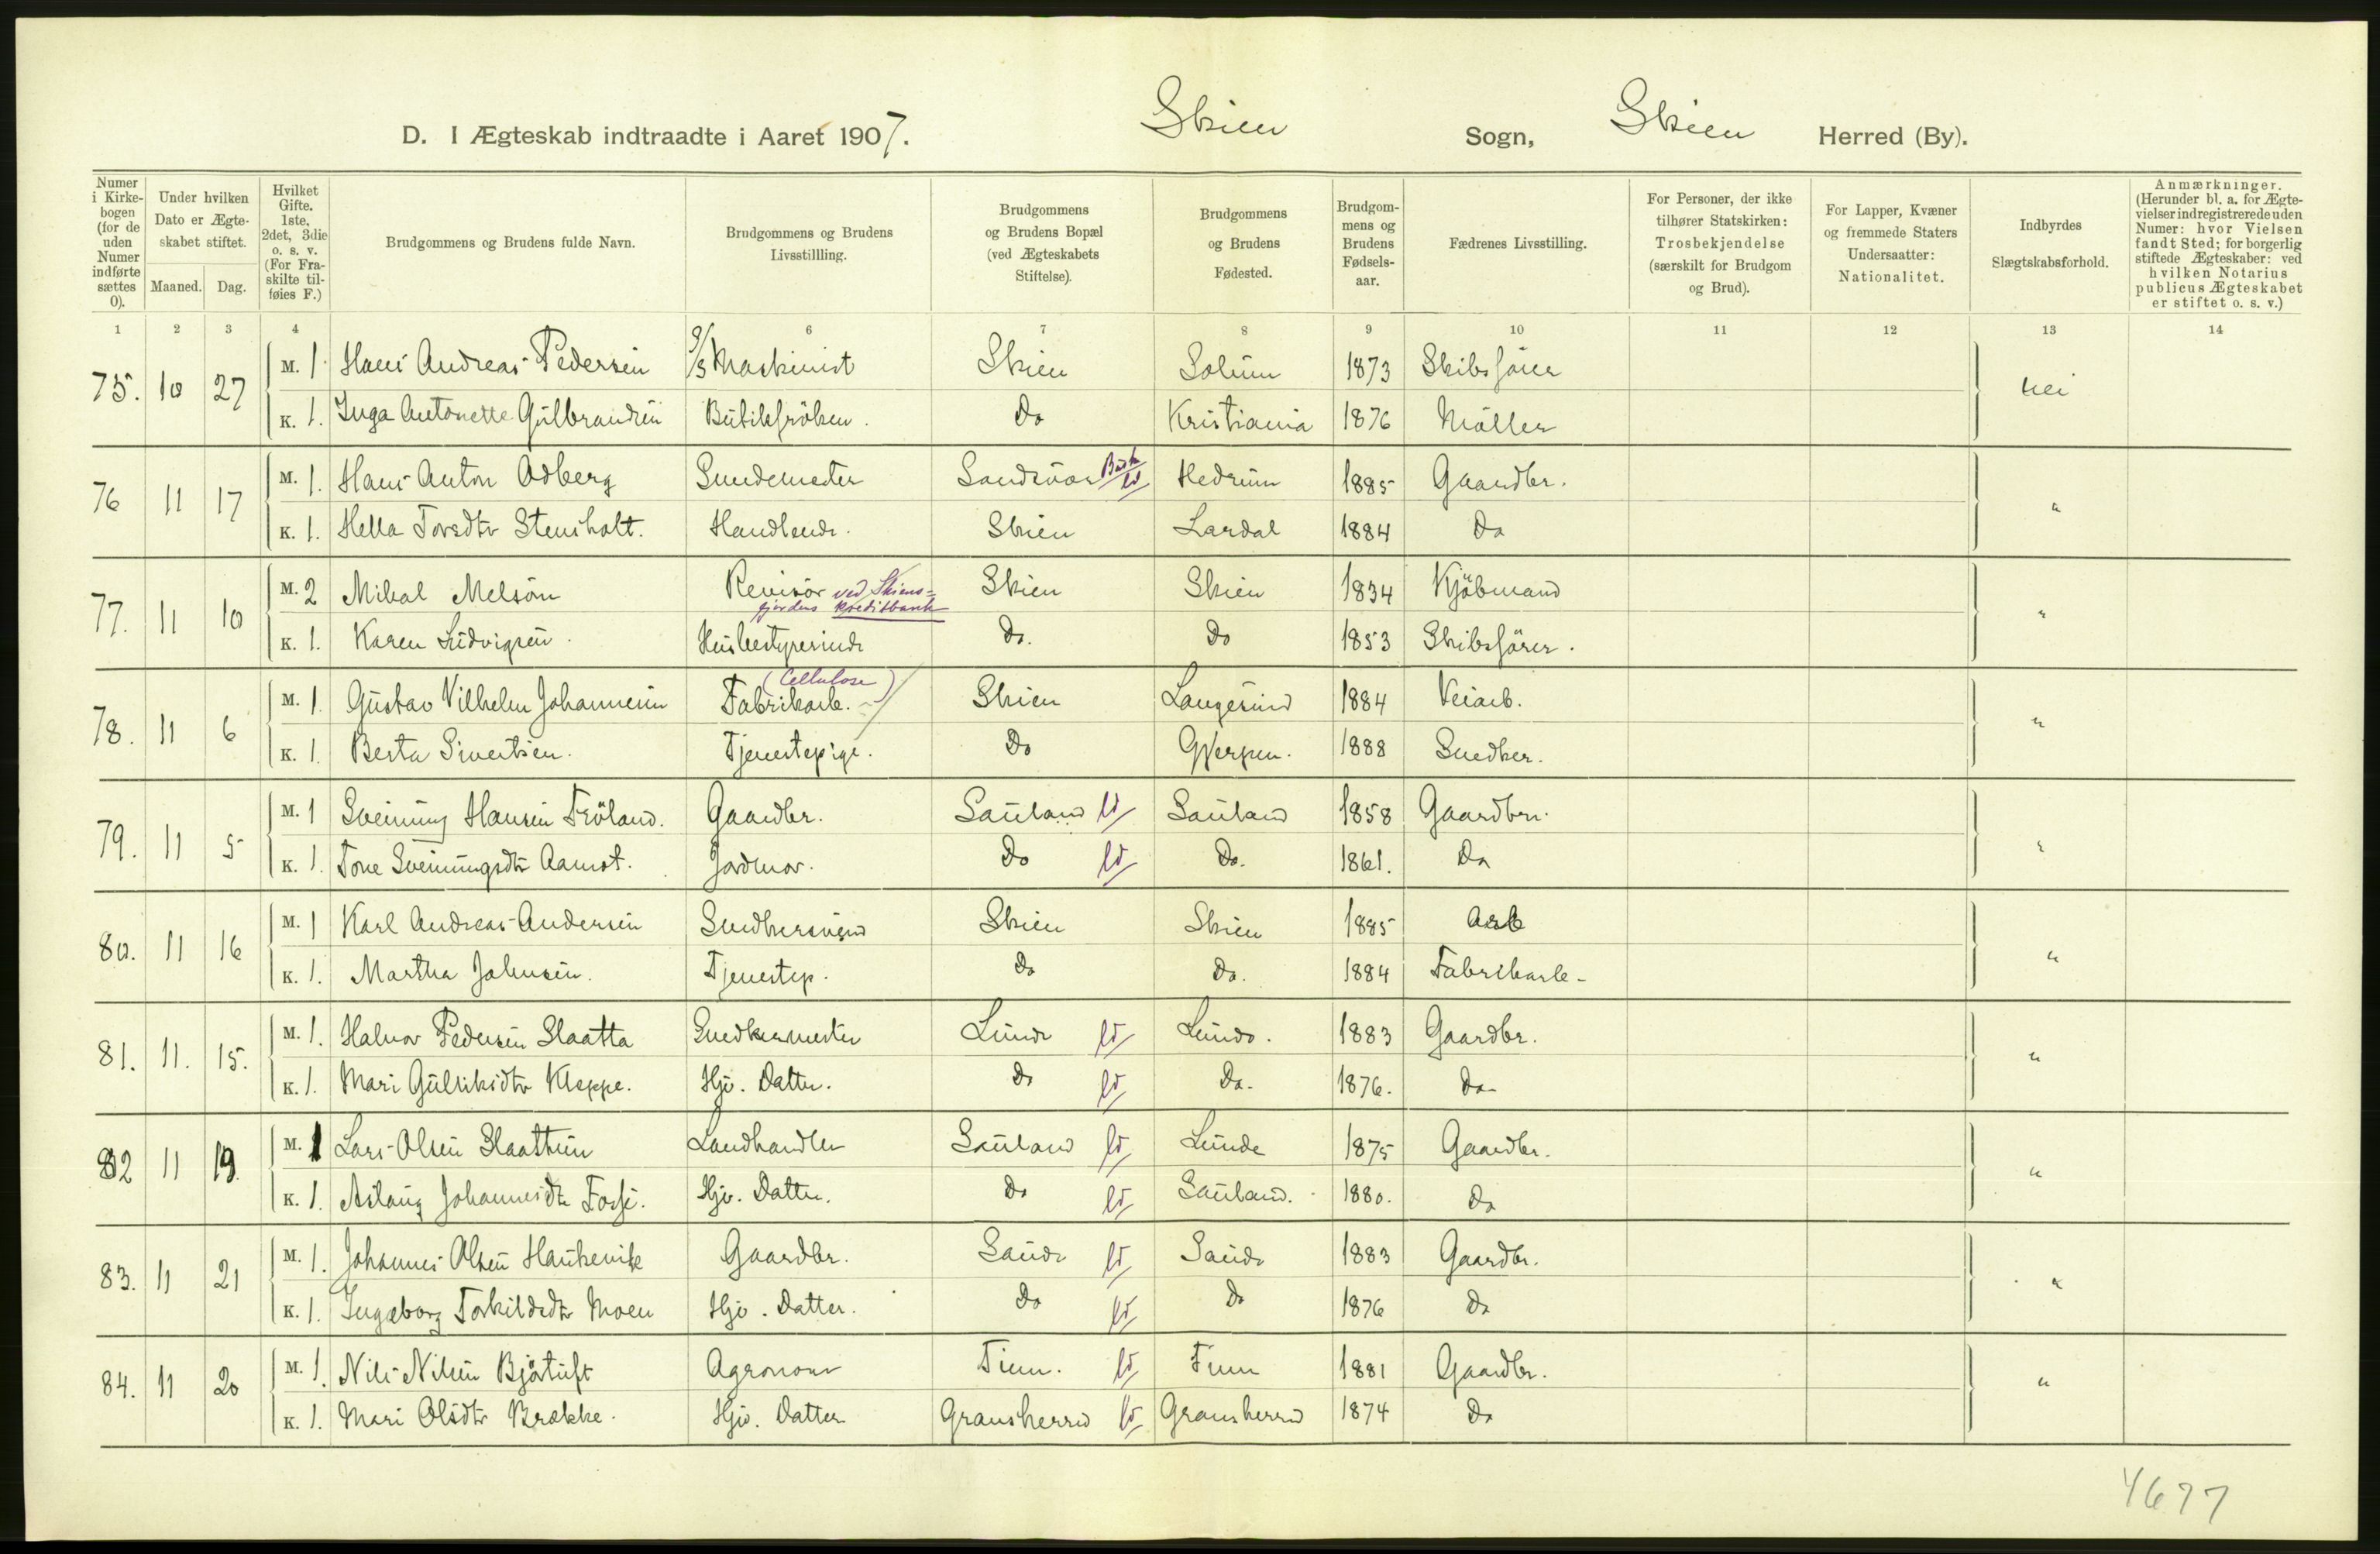 D. I Ægteskab indtraadte i Aaret 1907. Skien Sogn, Skien Herred (By).
Numer i Kirkebogen (for de uden Numer indførte sættes 0).
Under hvilken Dato er Ægteskabet stiftet.
Maaned. Dag.
Hvilket Gifte. 1ste, 2det, 3die o. s. v. (For Fraskilte tilføies F.)
Brudgommens og Brudens fulde Navn.
Brudgommens og Brudens Livsstillling.
Brudgommens og Brudens Bopæl (ved Ægteskabets Stiftelse).
Brudgommens og Brudens Fødested.
Brudgommens og Brudens Fødselsaar.
Fædrenes Livsstilling.
For Personer, der ikke tilhører Statskirken: Trosbekjendelse (særskilt for Brudgom og Brud).
For Lapper, Kvæner og fremmede Staters Undersaatter: Nationalitet.
Indbyrdes Slægtskabsforhold.
Anmærkninger. (Herunder bl. a. for Ægtevielser indregistrerede uden Numer: hvor Vielsen fandt Sted; for borgerlig stiftede Ægteskaber: ved hvilken Notarius publicus Ægteskabet er stiftet o. s. v.)
1 2 3 4 6 7 8 9 10 11 12 13 14
75. 10 27 M. 1. Hans Andreas Pedersen Maskinist Skien Solum 1873 Skibsförer nei
K. 1. Inga Antonette Gulbrandsen Butikfröken. Do Kristiania 1876 Möller
76 11 17 M. 1. Hans Anton Odberg Smedemester Sandsvær Busk ld Hedrum 1885 Gaardbr. "
K. 1. Hella Torsdtr Stensholt. Handlende. Skien Lardal 1884 Do
77. 11 10 M. 2 Mikal Melsöm Revisor ved Skiensfjordens Kreditbank Skien Skien 1834 Kjöbmand "
K. 1. Karen Ludvigsen. Husbestyrerinde Do. Do 1853 Skibsförer.
78. 11 6 M. 1. Gustav Vilhelm Johannesen Fabrikarb. (Cellulose) Skien Langesund 1884 Veiarb. "
K. 1. Berta Sivertsen. Tjenestepige. Do Gjerpen. 1888 Snedker.
79. 11 5 M. 1 Sveinung Hansen Fröland. Gaardbr. Sauland ld Sauland 1858 Gaardbr. "
K. 1. Tone Sveinungsdtr Aamot. Jordmor. Do ld Do. 1861. Do
80. 11 16 M. 1 Karl Andreas Andersen Snedkersvend Skien Skien 1885 Arb "
K. 1. Martha Johnsen. Tjenestep. Do Do. 1884 Fabrikarb.
81. 11. 15. M. 1. Halvor Pedersen Slaatta Snedkermester Lunde ld Lunde. 1883 Gaardbr. "
K. 1. Mari Gulliksdtr Kleppe. Hjv. Datter. Do ld Do. 1876. Do
82 11 19. M. 1 Lars Olsen Slaattun Landhandler Sauland ld Lunde 1875 Gaardbr. "
K. 1. Aslaug Johannesdtr Fosse. Hjv. Datter. Do ld Sauland. 1880. Do
83. 11 21 M. 1. Johannes Olsen Haukevik Gaardbr. Saude ld Saude 1883 Gaardbr. "
K. 1. Ingeborg Torkildsdtr Moen Hjv. Datter. Do ld Do 1876 Do
84. 11 20 M. 1. Nils Nilsen Bjårtuft Agronom Tinn. ld Tinn 1881 Gaardbr. "
K. 1. Mari Olsdtr Brække. Hjv. Datter Gransherred ld Gransherred 1874 Do
4677